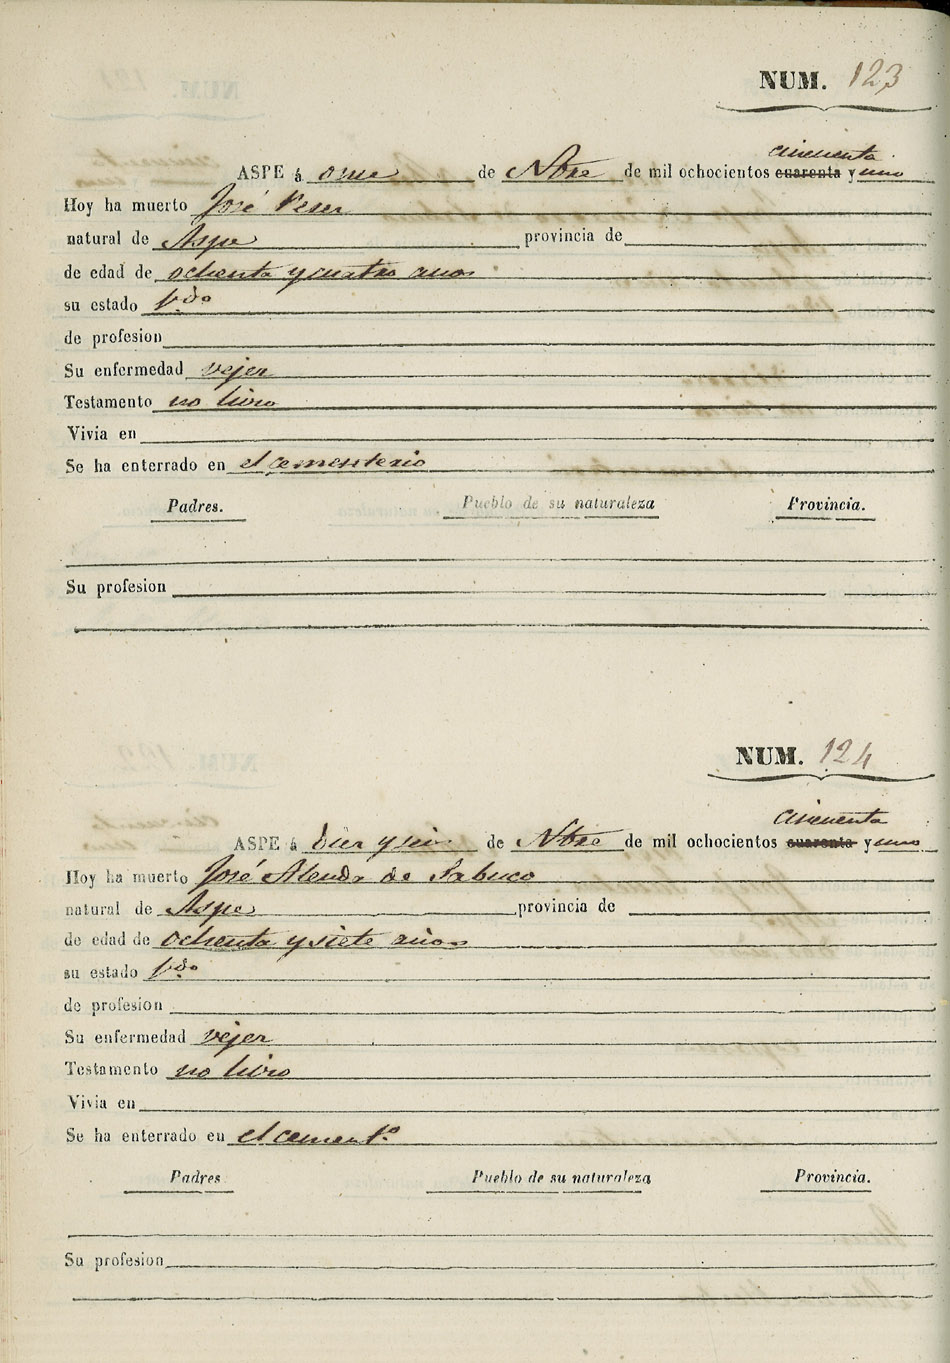 NUM. 123
cincuenta
ASPE á onse de Nbre de mil ochocientos cuarenta y uno
Hoy ha muerto José Perez
natural de Aspe provincia de
de edad de ochenta y cuatro años
su estado Vdo
de profesion
Su enfermedad vejez
Testamento no hizo
Vivia en
Se ha enterrado en el cementerio
Padres. Pueblo de su naturaleza Provincia.
Su profesion
NUM. 124
cincuenta
ASPE á diez y seis de Nbre de mil ochocientos cuarenta y uno
Hoy ha muerto José Alenda de Sabuco
natural de Aspe provincia de
de edad de ochenta y siete años
su estado Vdo
de profesion
Su enfermedad vejez
Testamento no hizo
Vivia en
Se ha enterrado en el cemento
Padres Pueblo de su naturaleza Provincia.
Su profesion